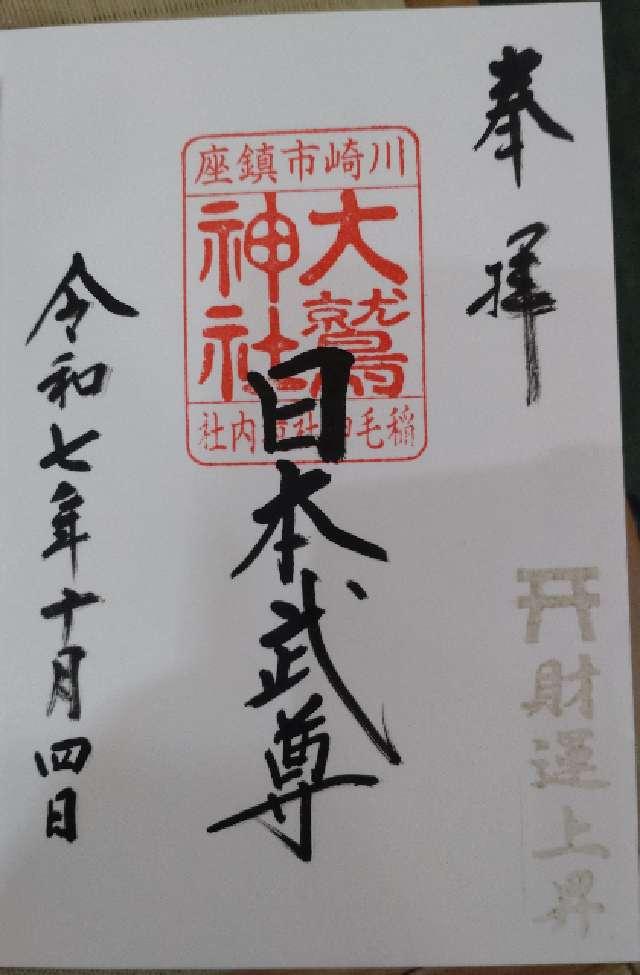 奉拝
川崎市鎮座
大鷲
神社
稲毛神社境内社
日本武尊
令和七年十月四日
財運上昇